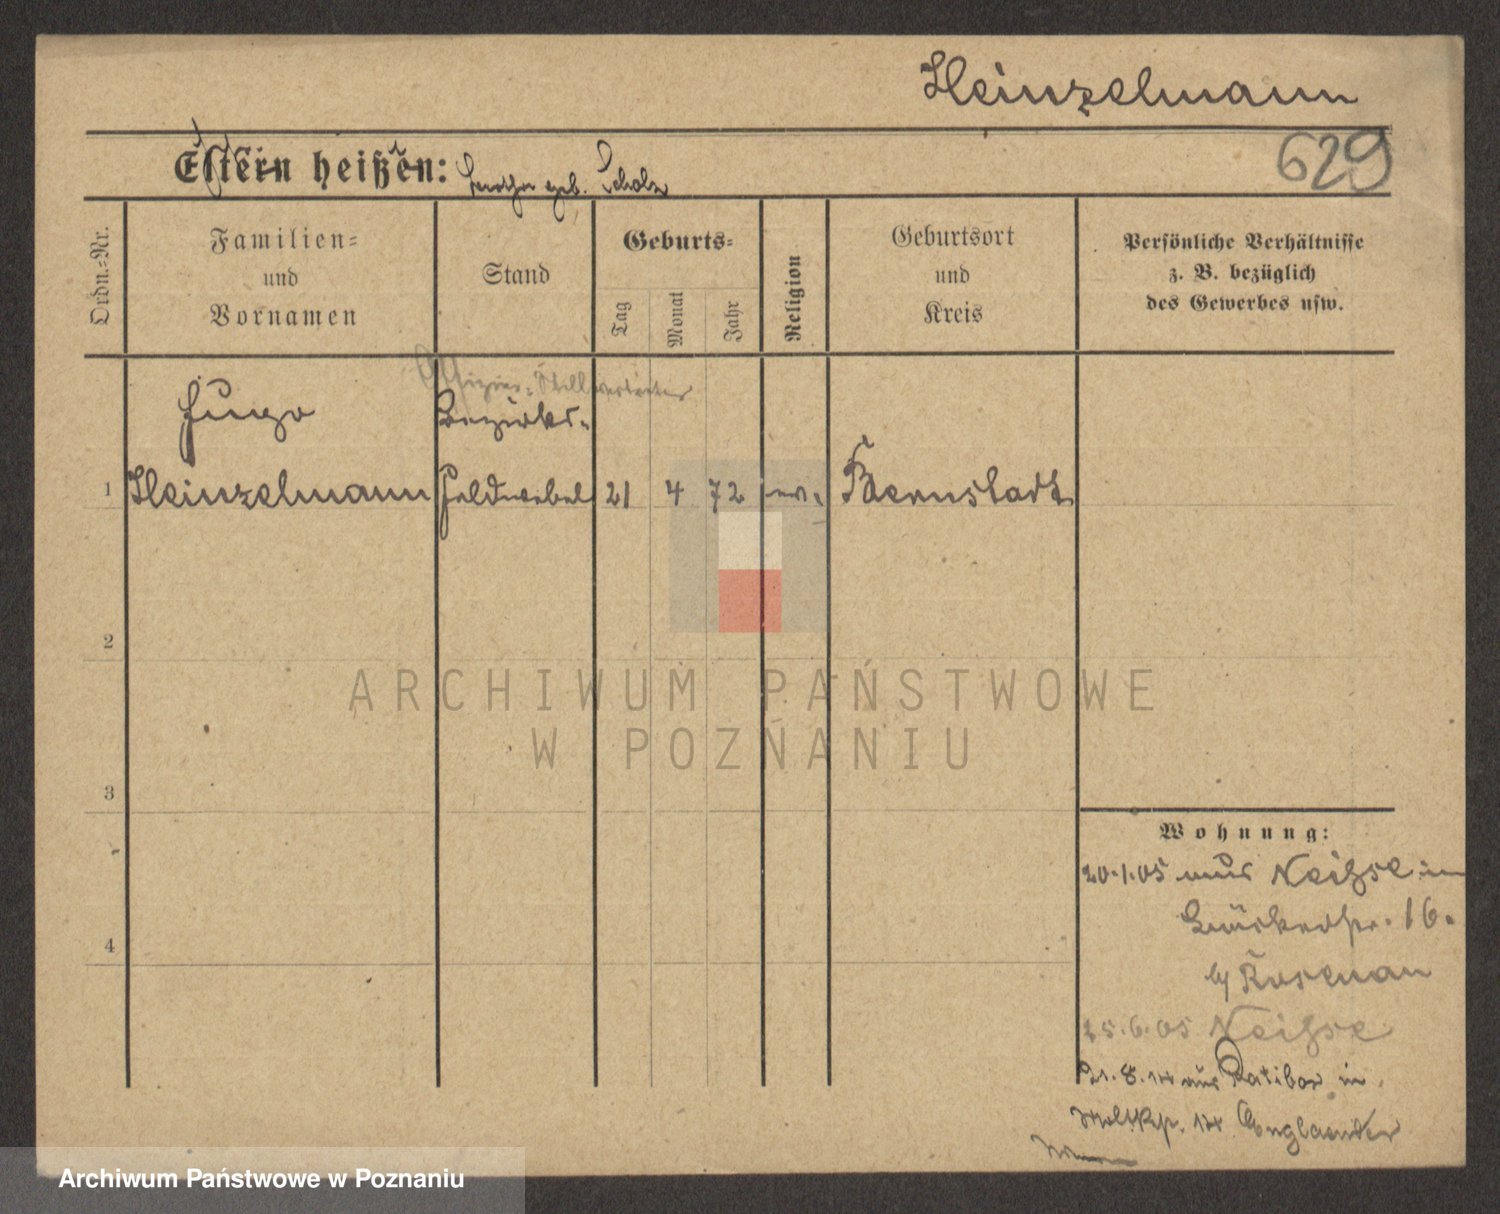 Heinzelmann
629
Eltern heißen: geb. Scholz
Ordn.-Nr.
Familien-
und
Vornamen
Stand
Geburts-
Tag
Monat
Jahr
Religion
Geburtsort
und
Kreis
Persönliche Verhältnisse
z. B. bezüglich
des Gewerbes usw.
Offizier-Stellvertreter
Hugo
Bezirks-
1 Heinzelmann Feldwebel 21 4 72 ev. Bernstadt
2
3
4
Wohnung:
20.1.05 aus Neiße in
16.
b/ Rosenau
25.6.05 Neiße
21.8.14 aus Ratibor in
Moltkestr. 14. Englaender
ARCHIWUM PAŃSTWOWE
W POZNANIU
Archiwum Państwowe w Poznaniu